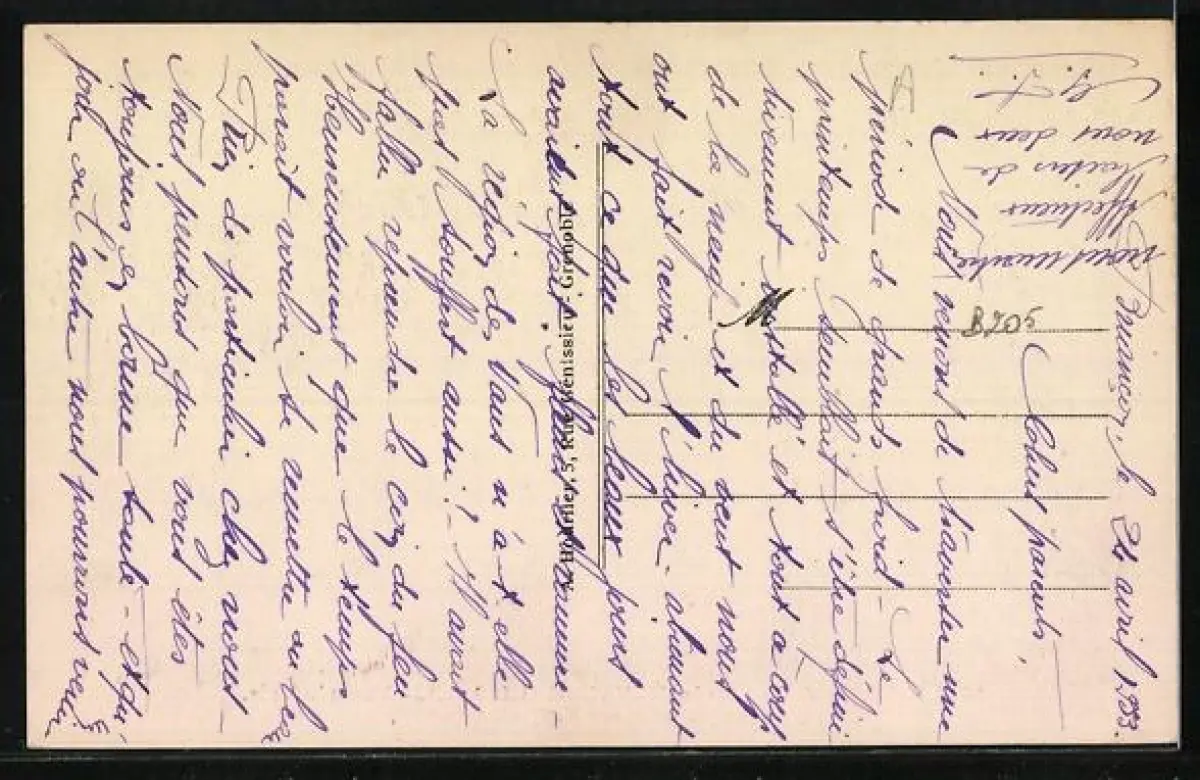 Briançon, le 24 avril 1933.
Chers parents,
Nous venons de traverser une
période de grands froids - Le
printemps semblait s'être défini
tivement installé et tout à coup
de la neige et du vent nous
ont fait revoir l'hiver - abîmant
tout ce que les beaux jours
avaient fait
La région des Vans n'a t elle
pas souffert aussi! - Il aurait
fallu répandre le coin du feu
Heureusement que le temps
paraît vouloir se remettre au beau
Rien de particulier chez nous -
Nous pensons que vous êtes
toujours en bonne santé - et qu'
l'autre nous pourrons
vous
Affectueux
Baisers de
nous deux
M
B205
5, Rue Ménissier - Grenoble